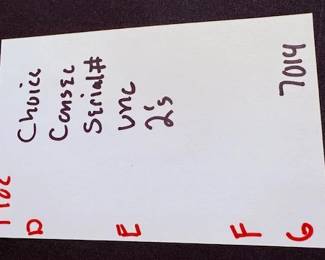 D Choice
Consec
Serial#
E unc
2's
F
G 7014